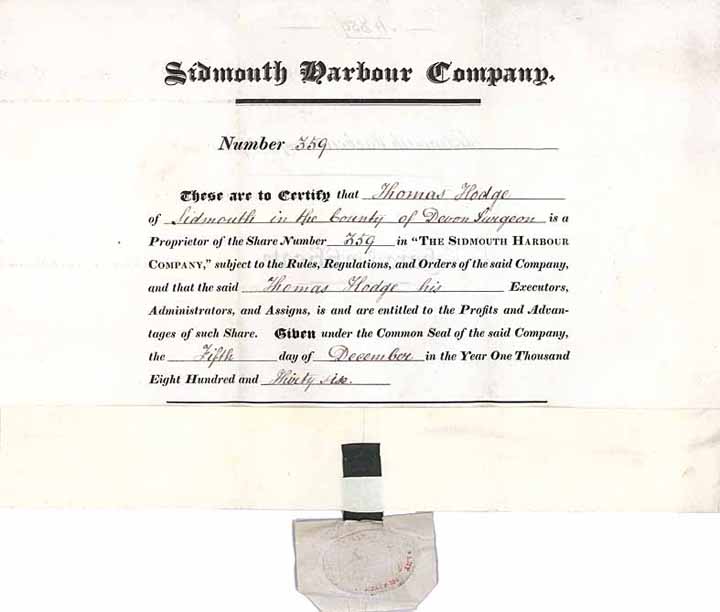 Sidmouth Harbour Company.
Number 359
These are to Certify that Thomas Hodge
of Sidmouth in the County of Devon Surgeon is a
Proprietor of the Share Number 359 in "THE SIDMOUTH HARBOUR
COMPANY," subject to the Rules, Regulations, and Orders of the said Company,
and that the said Thomas Hodge his Executors,
Administrators, and Assigns, is and are entitled to the Profits and Advan-
tages of such Share. Given under the Common Seal of the said Company,
the Fifth day of December in the Year One Thousand
Eight Hundred and Thirty six.